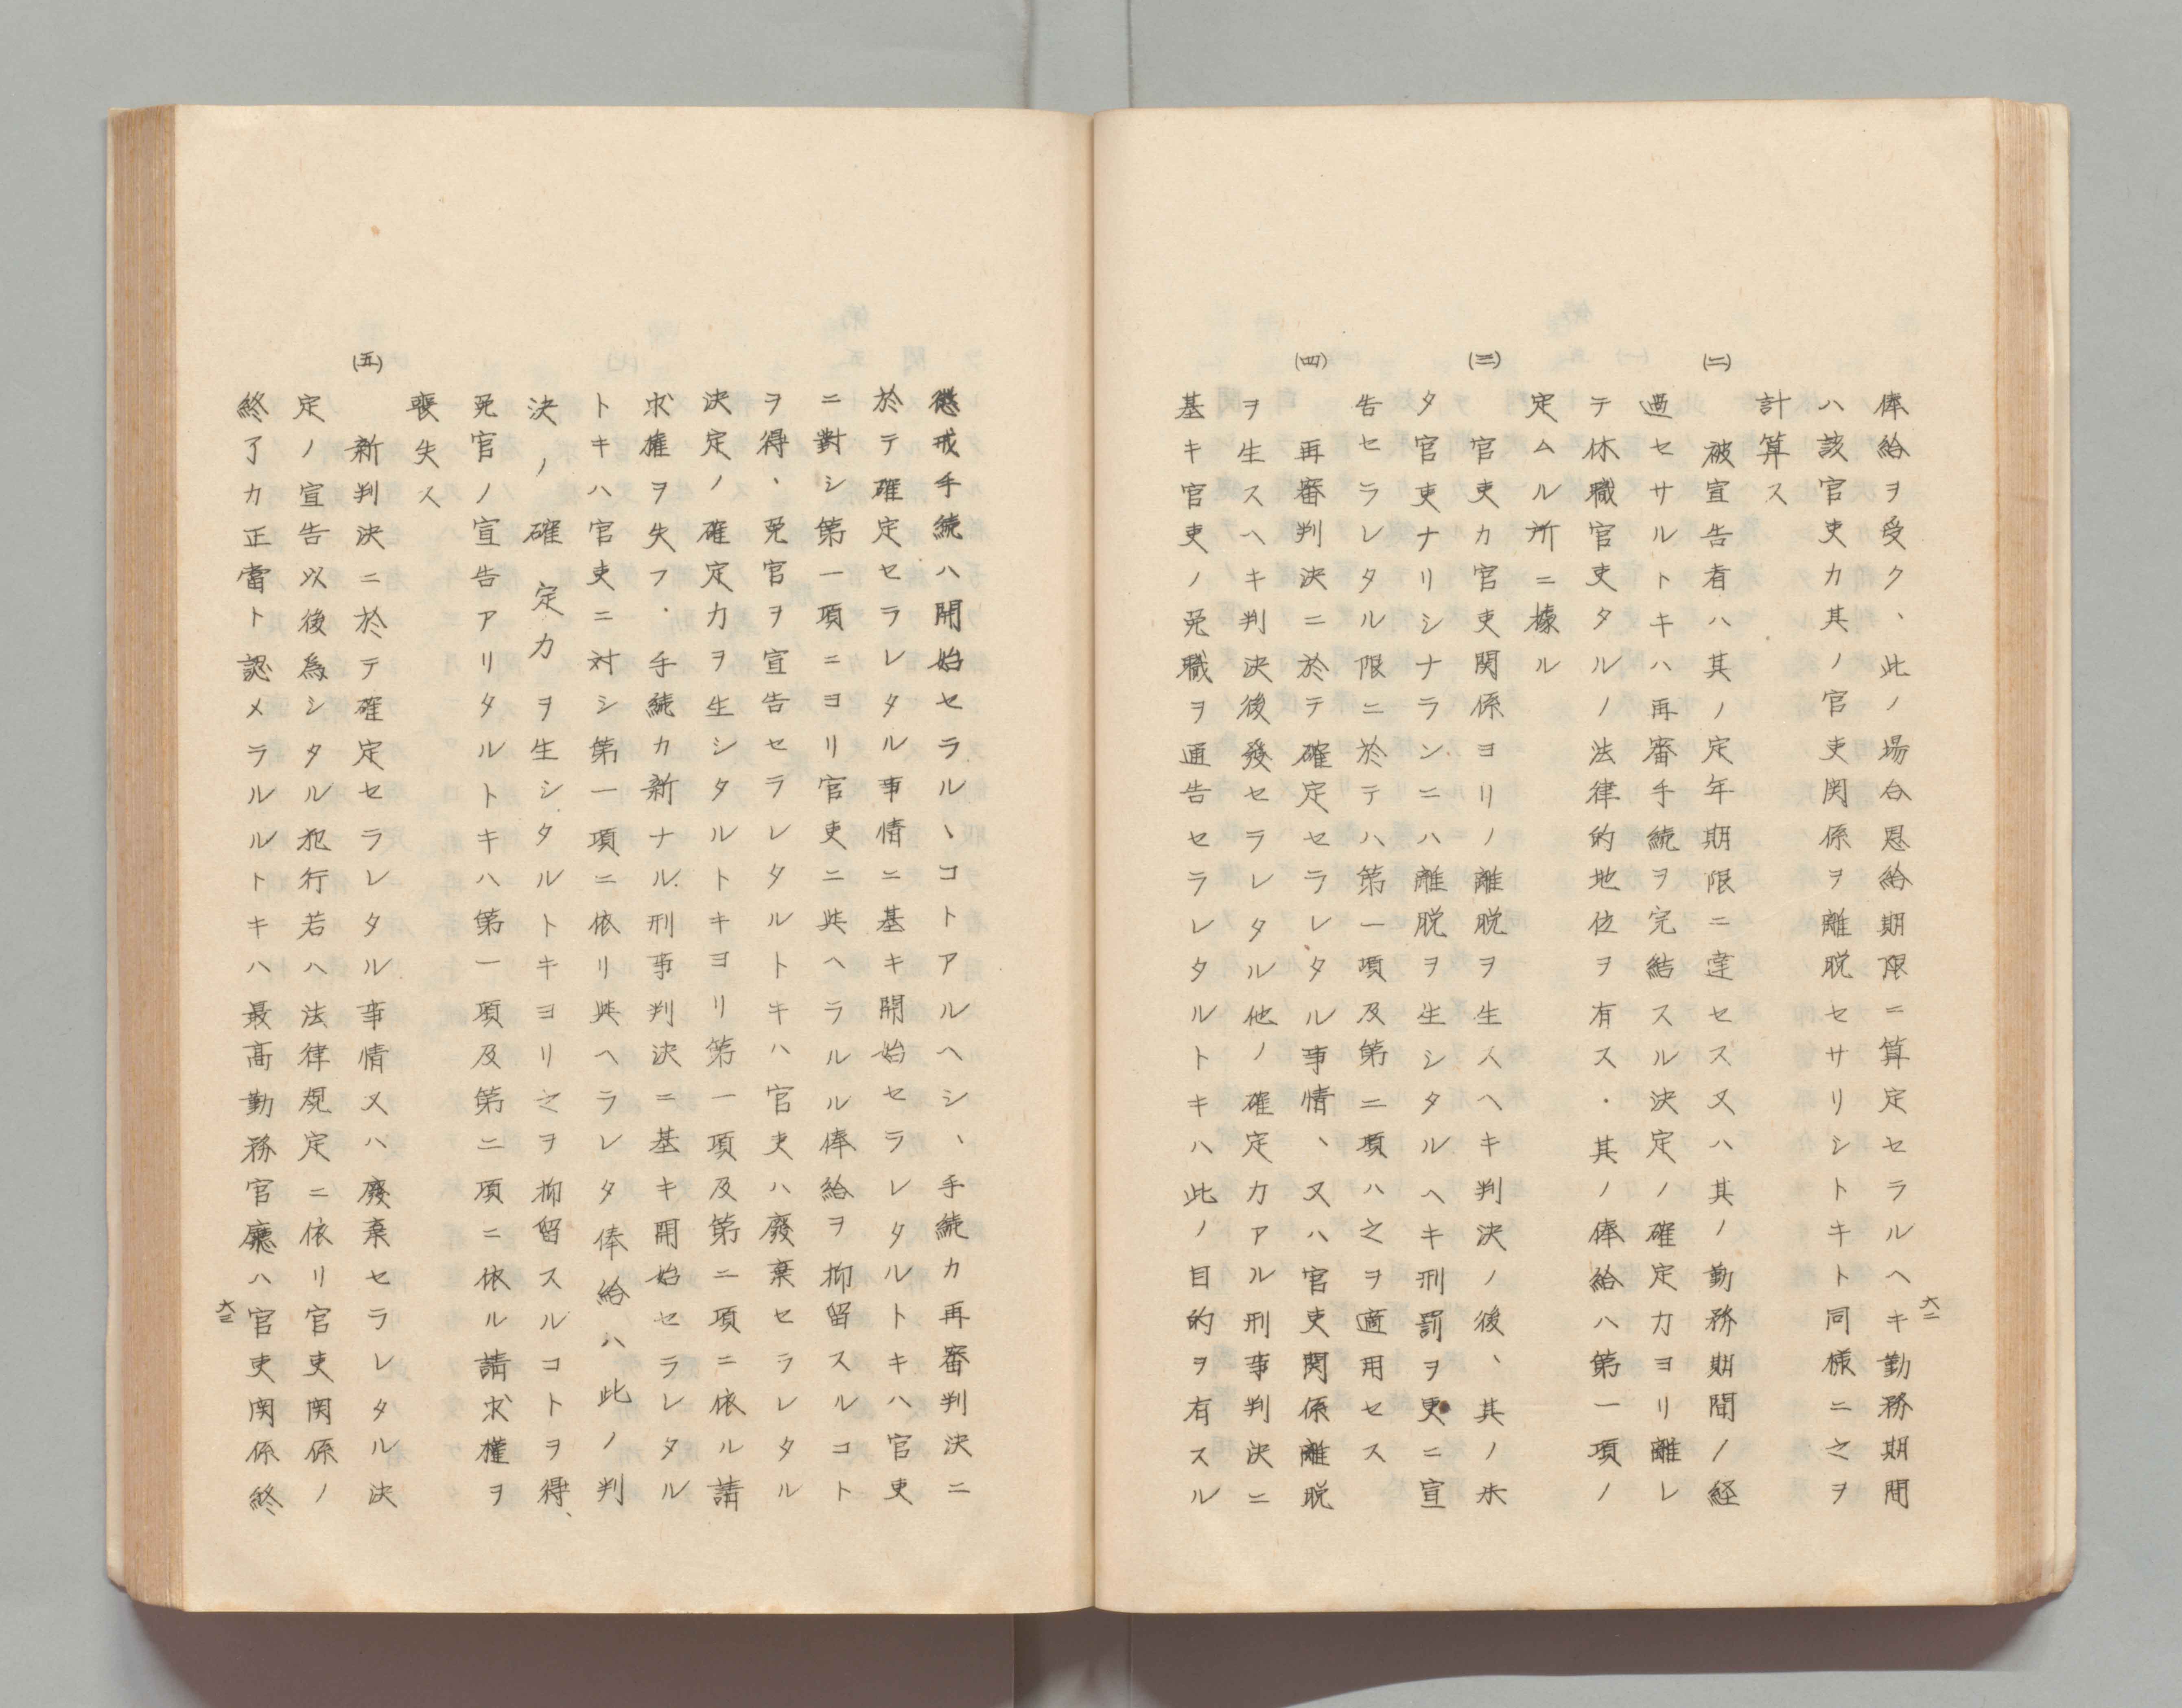 俸給ヲ受ク、此ノ場合恩給期限ニ算定セラルヘキ勤務期間
ハ該官吏カ其ノ官吏関係ヲ離脱セサリシトキト同様ニ之ヲ
計算ス
(二) 被宣告者ハ其ノ定年期限ニ達セス又ハ其ノ勤務期間ノ経
過セサルトキハ再審手続ヲ完結スル決定ノ確定力ヨリ離レ
テ休職官吏タルノ法律的地位ヲ有ス・其ノ俸給ハ第一項ノ
定ムル所ニ據ル
(三) 官吏カ官吏関係ヨリノ離脱ヲ生スヘキ判決ノ後、其ノ未
タ官吏ナリシナランニハ離脱ヲ生シタルヘキ刑罰ヲ更ニ宣
告セラレタル限ニ於テハ第一項及第二項ハ之ヲ適用セス
(四) 再審判決ニ於テ確定セラレタル事情、又ハ官吏関係離脱
ヲ生スヘキ判決後發セラレタル他ノ確定力アル刑事判決ニ
基キ官吏ノ免職ヲ通告セラレタルトキハ此ノ目的ヲ有スル
六二
懲戒手続ハ開始セラルヽコトアルヘシ、手続カ再審判決ニ
於テ確定セラレタル事情ニ基キ開始セラレタルトキハ官吏
ニ對シ第一項ニヨリ官吏ニ與ヘラルル俸給ヲ抑留スルコト
ヲ得、免官ヲ宣告セラレタルトキハ官吏ハ廢棄セラレタル
決定ノ確定力ヲ生シタルトキヨリ第一項及第二項ニ依ル請
求権ヲ失フ・手続カ新ナル刑事判決ニ基キ開始セラレタル
トキハ官吏ニ対シ第一項ニ依リ與ヘラレタ俸給ハ此ノ判
決ノ確定力ヲ生シタルトキヨリ之ヲ抑留スルコトヲ得、
免官ノ宣告アリタルトキハ第一項及第二項ニ依ル請求權ヲ
喪失ス
(五) 新判決ニ於テ確定セラレタル事情又ハ廢棄セラレタル決
定ノ宣告以後為シタル犯行若ハ法律規定ニ依リ官吏関係ノ
終了カ正當ト認メラルルトキハ最高勤務官廳ハ官吏関係終
六三